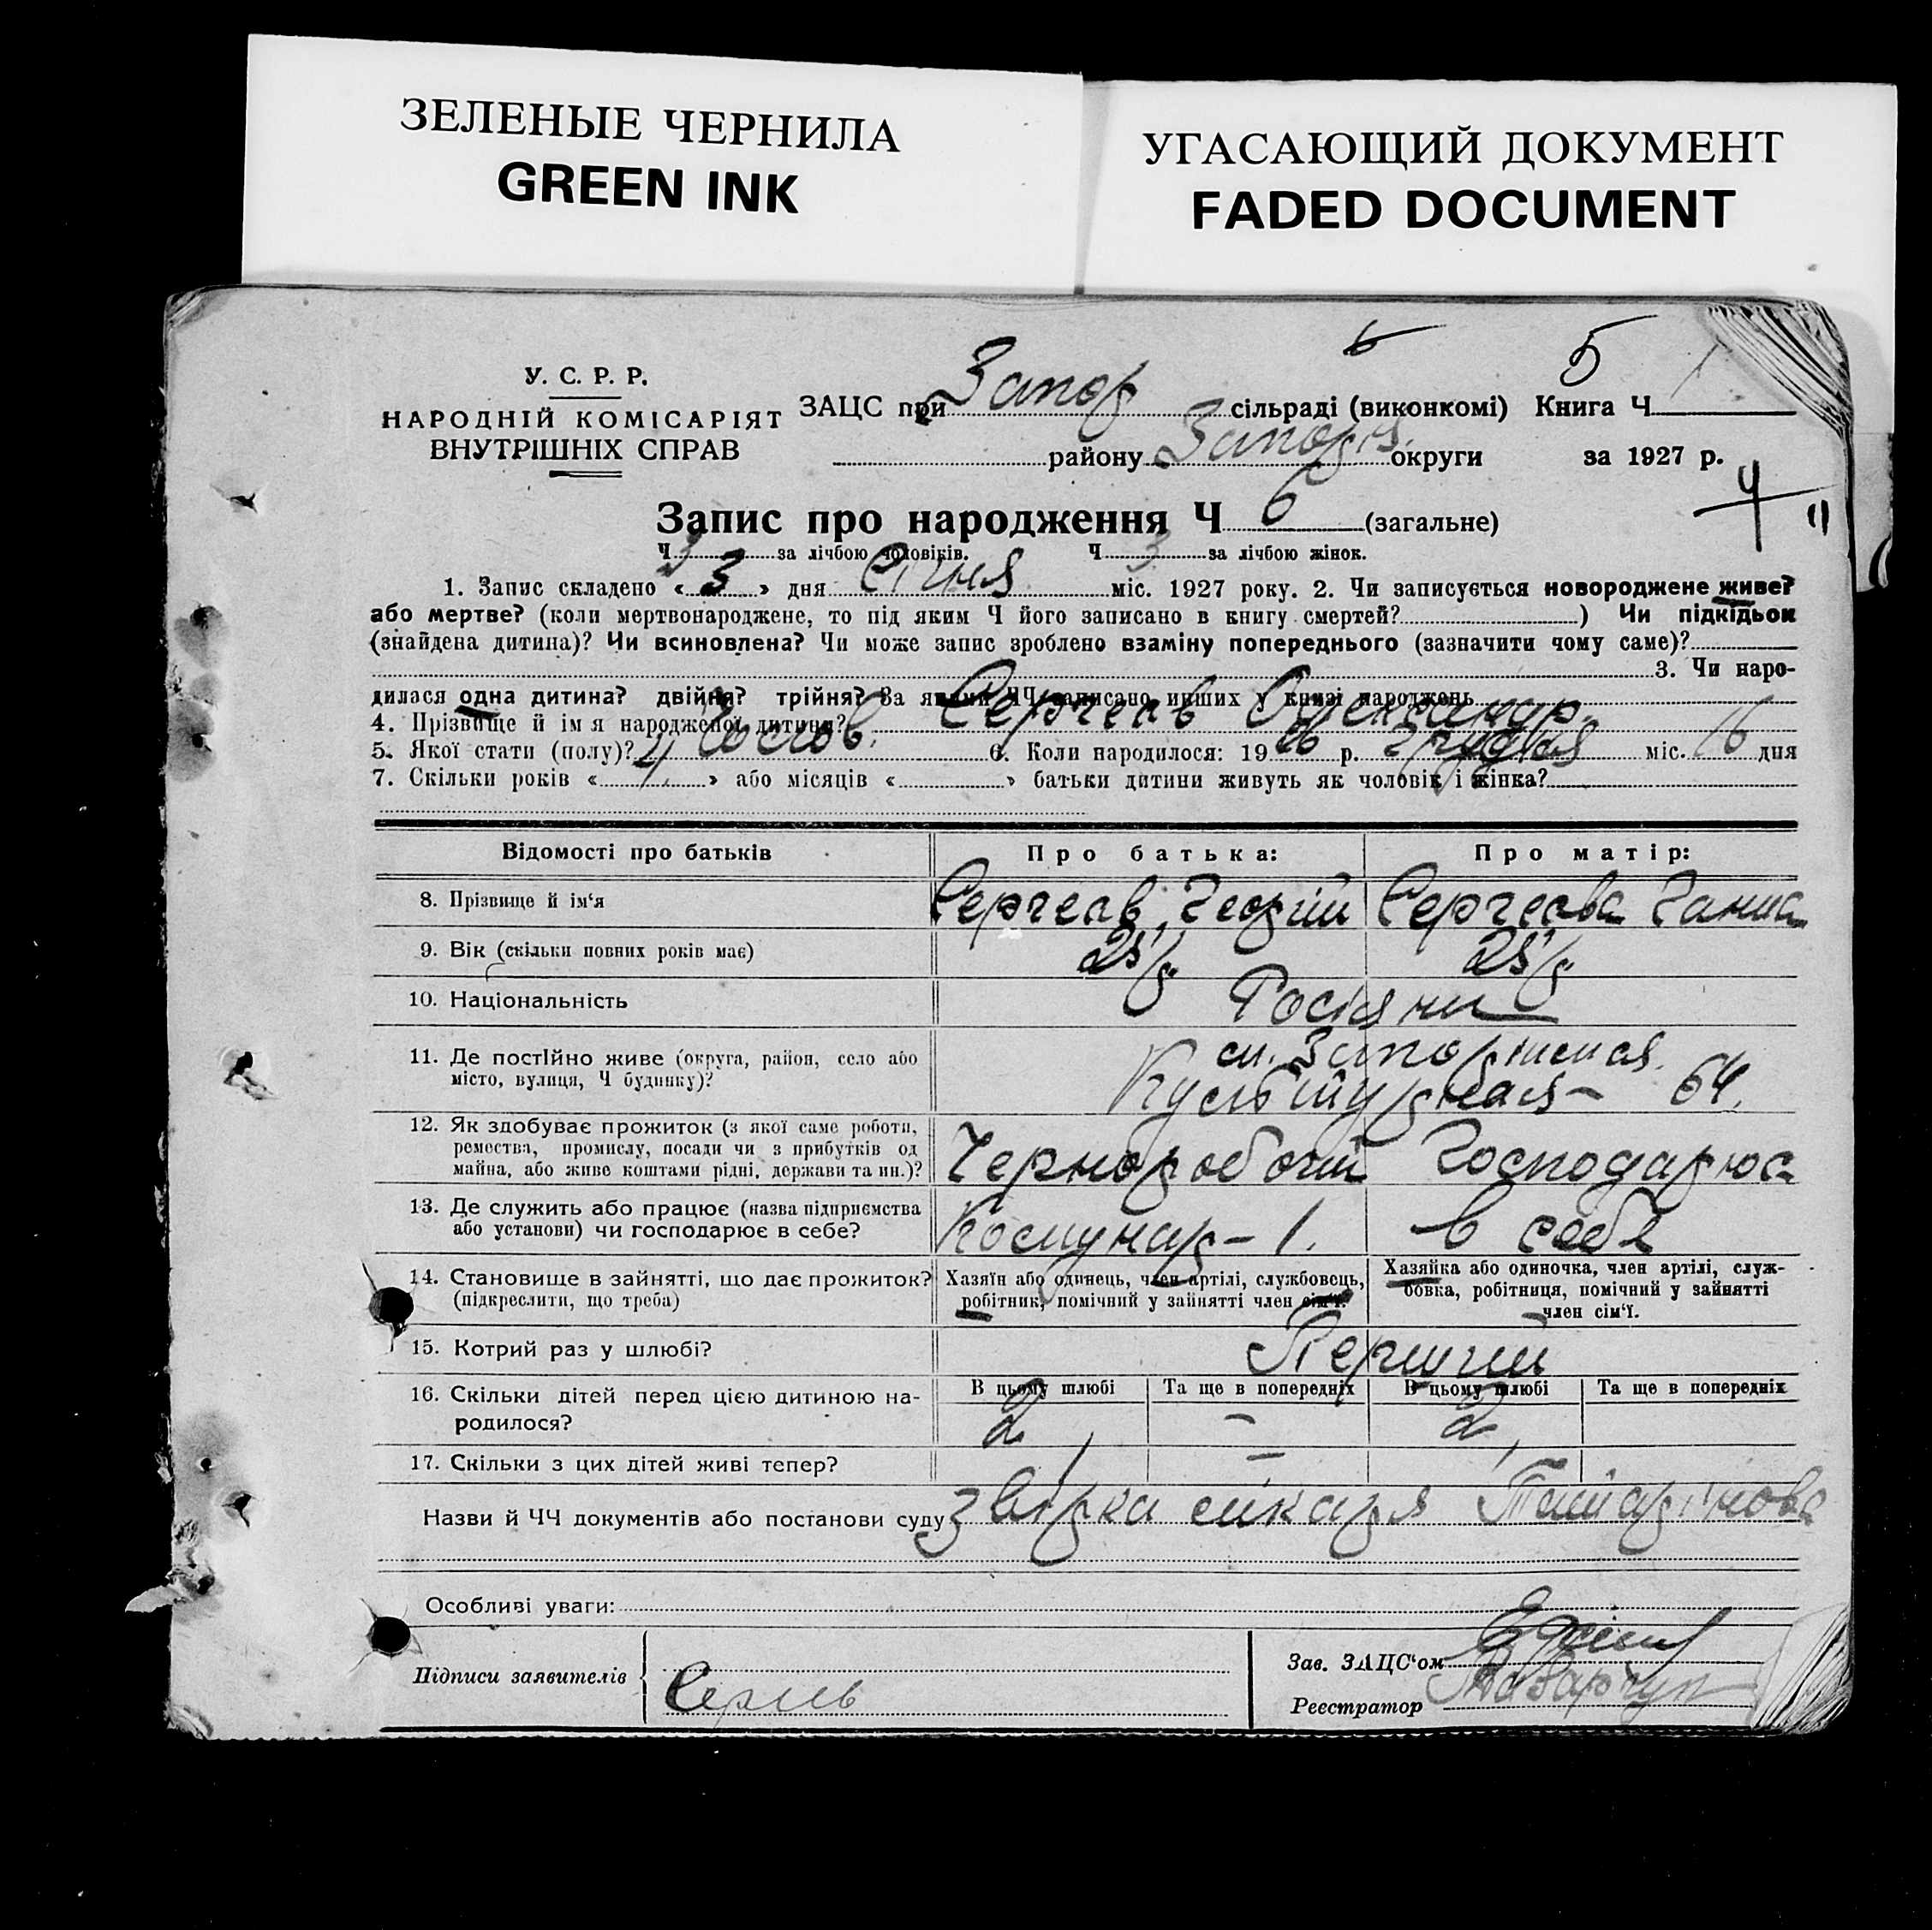 ЗЕЛЕНЫЕ ЧЕРНИЛА
GREEN INK
УГАСАЮЩИЙ ДОКУМЕНТ
FADED DOCUMENT
5
У. С. Р. Р.
НАРОДНІЙ КОМІСАРІЯТ
ВНУТРІШНІХ СПРАВ
ЗАЦС при Запор сільраді (виконкомі) Книга Ч
району Запоріз. округи за 1927 р.
Запис про народження Ч 6 (загальне)
Ч 3 за лічбою чоловіків. Ч 3 за лічбою жінок.
1. Запис складено « 3 » дня Січня міс. 1927 року. 2. Чи записується новороджене живе?
або мертве? (коли мертвонароджене, то під яким Ч його записано в книгу смертей? ) Чи підкідьок
(знайдена дитина)? Чи всиновлена? Чи може запис зроблено взаміну попереднього (зазначити чому саме)?
3. Чи наро-
дилася одна дитина? двійня? трійня? За якими ЧЧ записано инших у книзі народжень
4. Прізвище й ім я народженої дитини? Сергеєв Олександр.
5. Якої стати (полу)? Чолов. 6. Коли народилося: 19 26 р. Грудня міс. 16 дня
7. Скільки років « 4 » або місяців « » батьки дитини живуть як чоловік і жінка?
Відомості про батьків Про батька: Про матір:
8. Прізвище й ім‘я Сергеєв Георгій Сергеєва Ганна
9. Вік (скільки повних років має) 25 р 25 р
10. Національність Росіяни
11. Де постійно живе (округа, район, село або
місто, вулиця, Ч будинку)?
Культурная – 64.
12. Як здобуває прожиток (з якої саме роботи,
ремества, промислу, посади чи з прибутків од
майна, або живе коштами рідні, держави та ин.)?
Чорноробочий Господарює
13. Де служить або працює (назва підприємства
або установи) чи господарює в себе?
Комунар – 1. в себе
14. Становище в зайнятті, що дає прожиток?
(підкреслити, що треба)
Хазяїн або одинець, член артілі, службовець,
робітник, помічний у зайнятті член сім‘ї.
Хазяйка або одиночка, член артілі, служ-
бовка, робітниця, помічний у зайнятті
член сім‘ї.
15. Котрий раз у шлюбі? Перший
16. Скільки дітей перед цією дитиною на-
родилося?
В цьому шлюбі Та ще в попередніх В цьому шлюбі Та ще в попередніх
2 – 2
17. Скільки з цих дітей живі тепер? 1 – 1
Назви й ЧЧ документів або постанови суду
Особливі уваги:
Підписи заявителів
Зав. ЗАЦС‘ом
Реєстратор